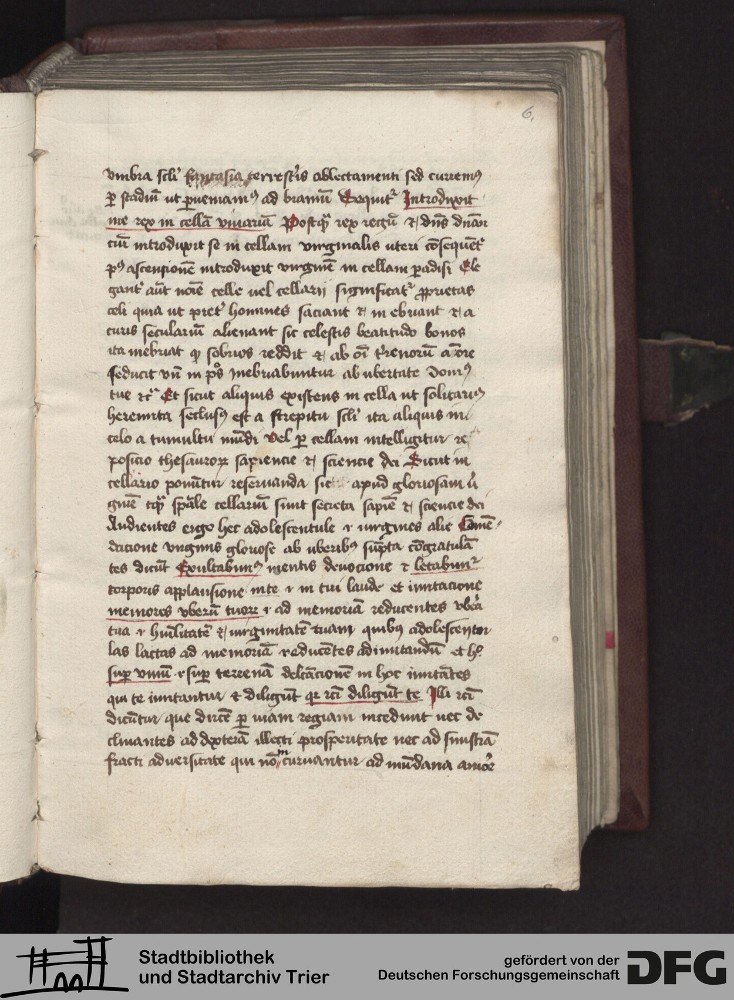 6
vmbra scłi fantasia terrestris oblectamenti sed curremꝰ
ꝑ stadiū ut ꝑueniamꝰ ad brauiū Sequitᷣ Introduxit
me rex in cellā vinariā Postqᷓ rex regū ⁊ dn̄s dn̄an
ciū introduxit se in cellam virginalis uteri cōsequentᷣ
pꝰ ascensionē introduxit virginē in cellam ꝑadisi Ele
gantᷣ aūt noīe celle uel cellarij significatᷣ ꝓprietas
celi quia ut pretᷣ homines saciant ⁊ inebriant ⁊ a
curis seculariū alienant sic celestis beatitudo bonos
ita inebriat ꝙ sobrios reddit ⁊ ab oī t̓renorū aōre
seducit vn̄ in pſ̄ Inebriabuntur ab ubertate domꝰ
tue ⁊cᷓ Et sicut aliquis existens in cella ut solitariꝰ
heremita seclusꝰ est a strepitu scłi ita aliquis in
celo a tumultu mūdi Vel ꝑ cellam intelligitur re
posicio thesaurorꝝ sapiencie ⁊ sciencie dei Sicut in
cellario ponūtur reseruanda sic apud gloriosam v̓
ginē tqᷓ sp̄ale cellariū sunt secreta sapiē ⁊ sciencie dei
Audientes ergo hec adolescentule ⁊ virgines alie Comē
dacione virginis gloriose ab uberibꝰ sūpta cōgratulā
tes dicūt Exultabimꝰ mentis deuocione ⁊ letabimᷣ
corporis applausione in te ⁊ in tui laude et imitacione
memores vberū tuorꝝ ⁊ ad memoriā reducentes vbera
tua ⁊ humilitatē ⁊ virginitatē tuam quibꝰ adolescentu
las lactas ad memoriā reducētes ad imitandū et hͦ
suꝑ vinū ⁊ suꝑ terrenā delcācionem in hoc imitātes
qui te imitantur ⁊ diligūt qr rcī diligūt te Illi rcī
dicūtur que dirc̄e ꝑ viam regiam incedunt nec de
clinantes ad dexterā illecti prosperitate nec ad sinistrā
fracti aduersitate qui nō incuruantur ad mūdana amōe
Stadtbibliothek
und Stadtarchiv Trier
gefördert von der
Deutschen Forschungsgemeinschaft
DFG